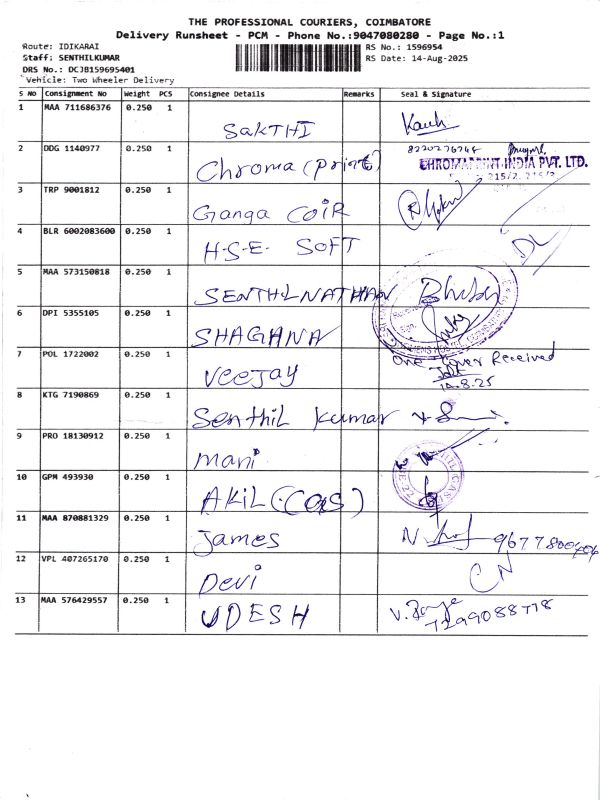 THE PROFESSIONAL COURIERS, COIMBATORE
Delivery Runsheet - PCM - Phone No.:9047080280 - Page No.:1
Route: IDIKARAI
RS No.: 1596954
Staff: SENTHILKUMAR
RS Date: 14-Aug-2025
DRS No.: DCJB159695401
Vehicle: Two Wheeler Delivery
S No Consignment No Weight PCS Consignee Details Remarks Seal & Signature
1 MAA 711686376 0.250 1 SAKTHI
2 DDG 1140977 0.250 1 Chroma (Print)
CHROMAPRINT INDIA PVT. LTD.
3 TRP 9001812 0.250 1 Ganga COIR
4 BLR 6002083600 0.250 1 H-S-E- SOFT DL
5 MAA 573150818 0.250 1 SENTHILNATHAN
6 DPI 5355105 0.250 1 SHAGANA
7 POL 1722002 0.250 1 Veejay One Cover Received
14.8.25
8 KTG 7190869 0.250 1 Senthil kumar
9 PRO 18130912 0.250 1 Mani
10 GPM 493930 0.250 1 AKIL (Cas)
11 MAA 870881329 0.250 1 James
12 VPL 407265170 0.250 1 Devi CN
13 MAA 576429557 0.250 1 UDESH